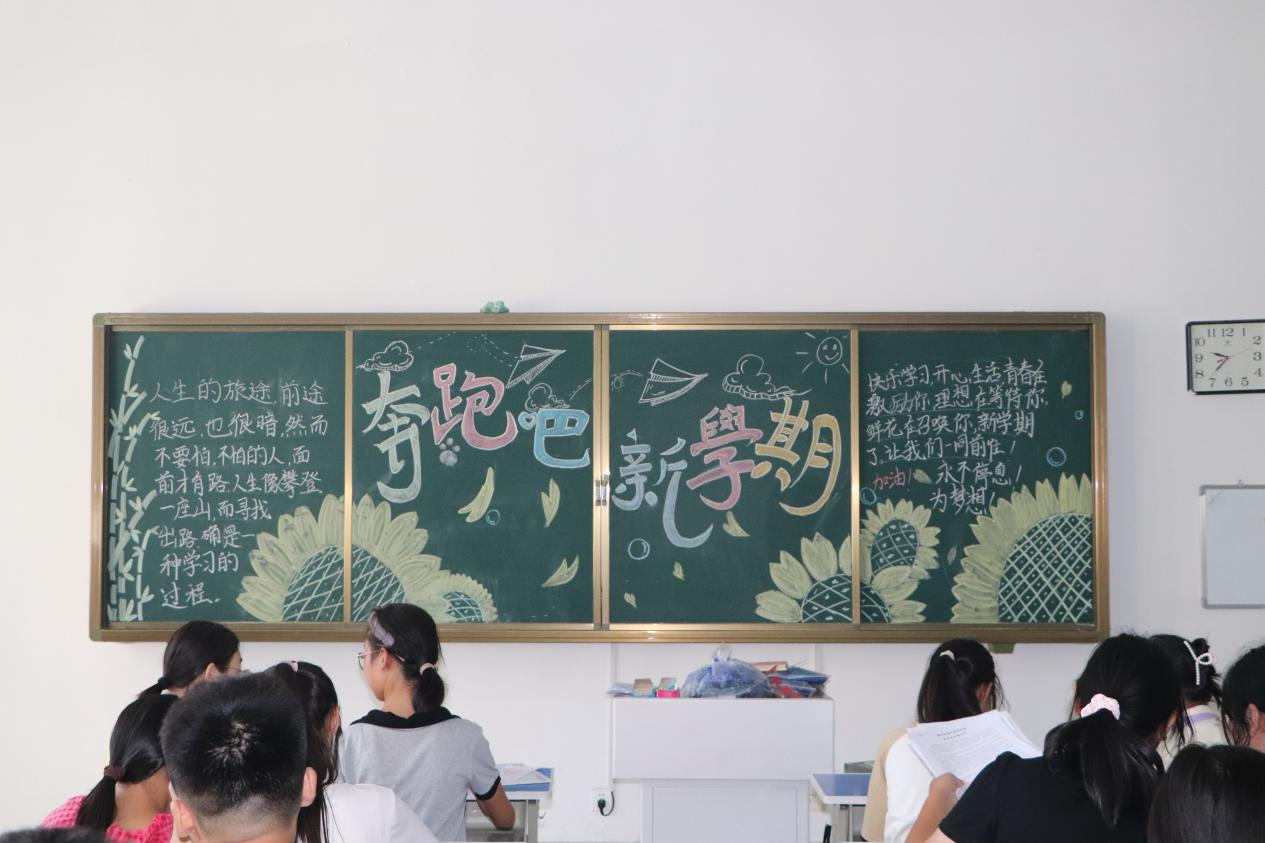 人生的旅途,前途
很远,也很暗,然而
不要怕,不怕的人,面
前才有路.人生像攀登
一座山,而寻找
出路,确是一
种学习的
过程.
奔跑吧
新學期
快乐学习,开心生活,青春在
激励你,理想在等待你,
鲜花在召唤你,新学期
了,让我们一同前往!
加油! 永不停息!
为梦想!
11 12 1
10 2
9 3
8 4
7 6 5